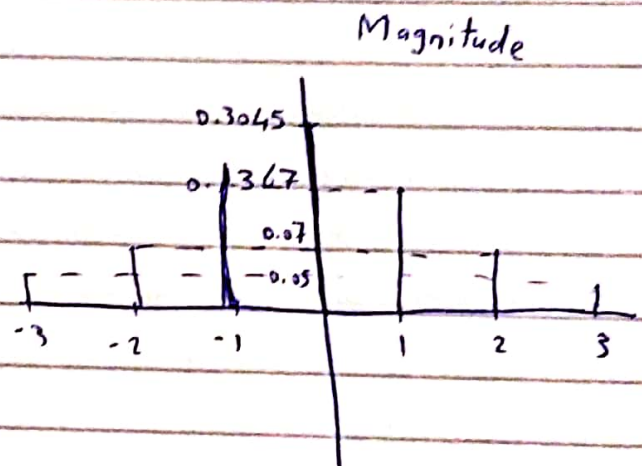 Magnitude
0.3045
0.1367
0.07
0.05
-3 -2 -1 1 2 3